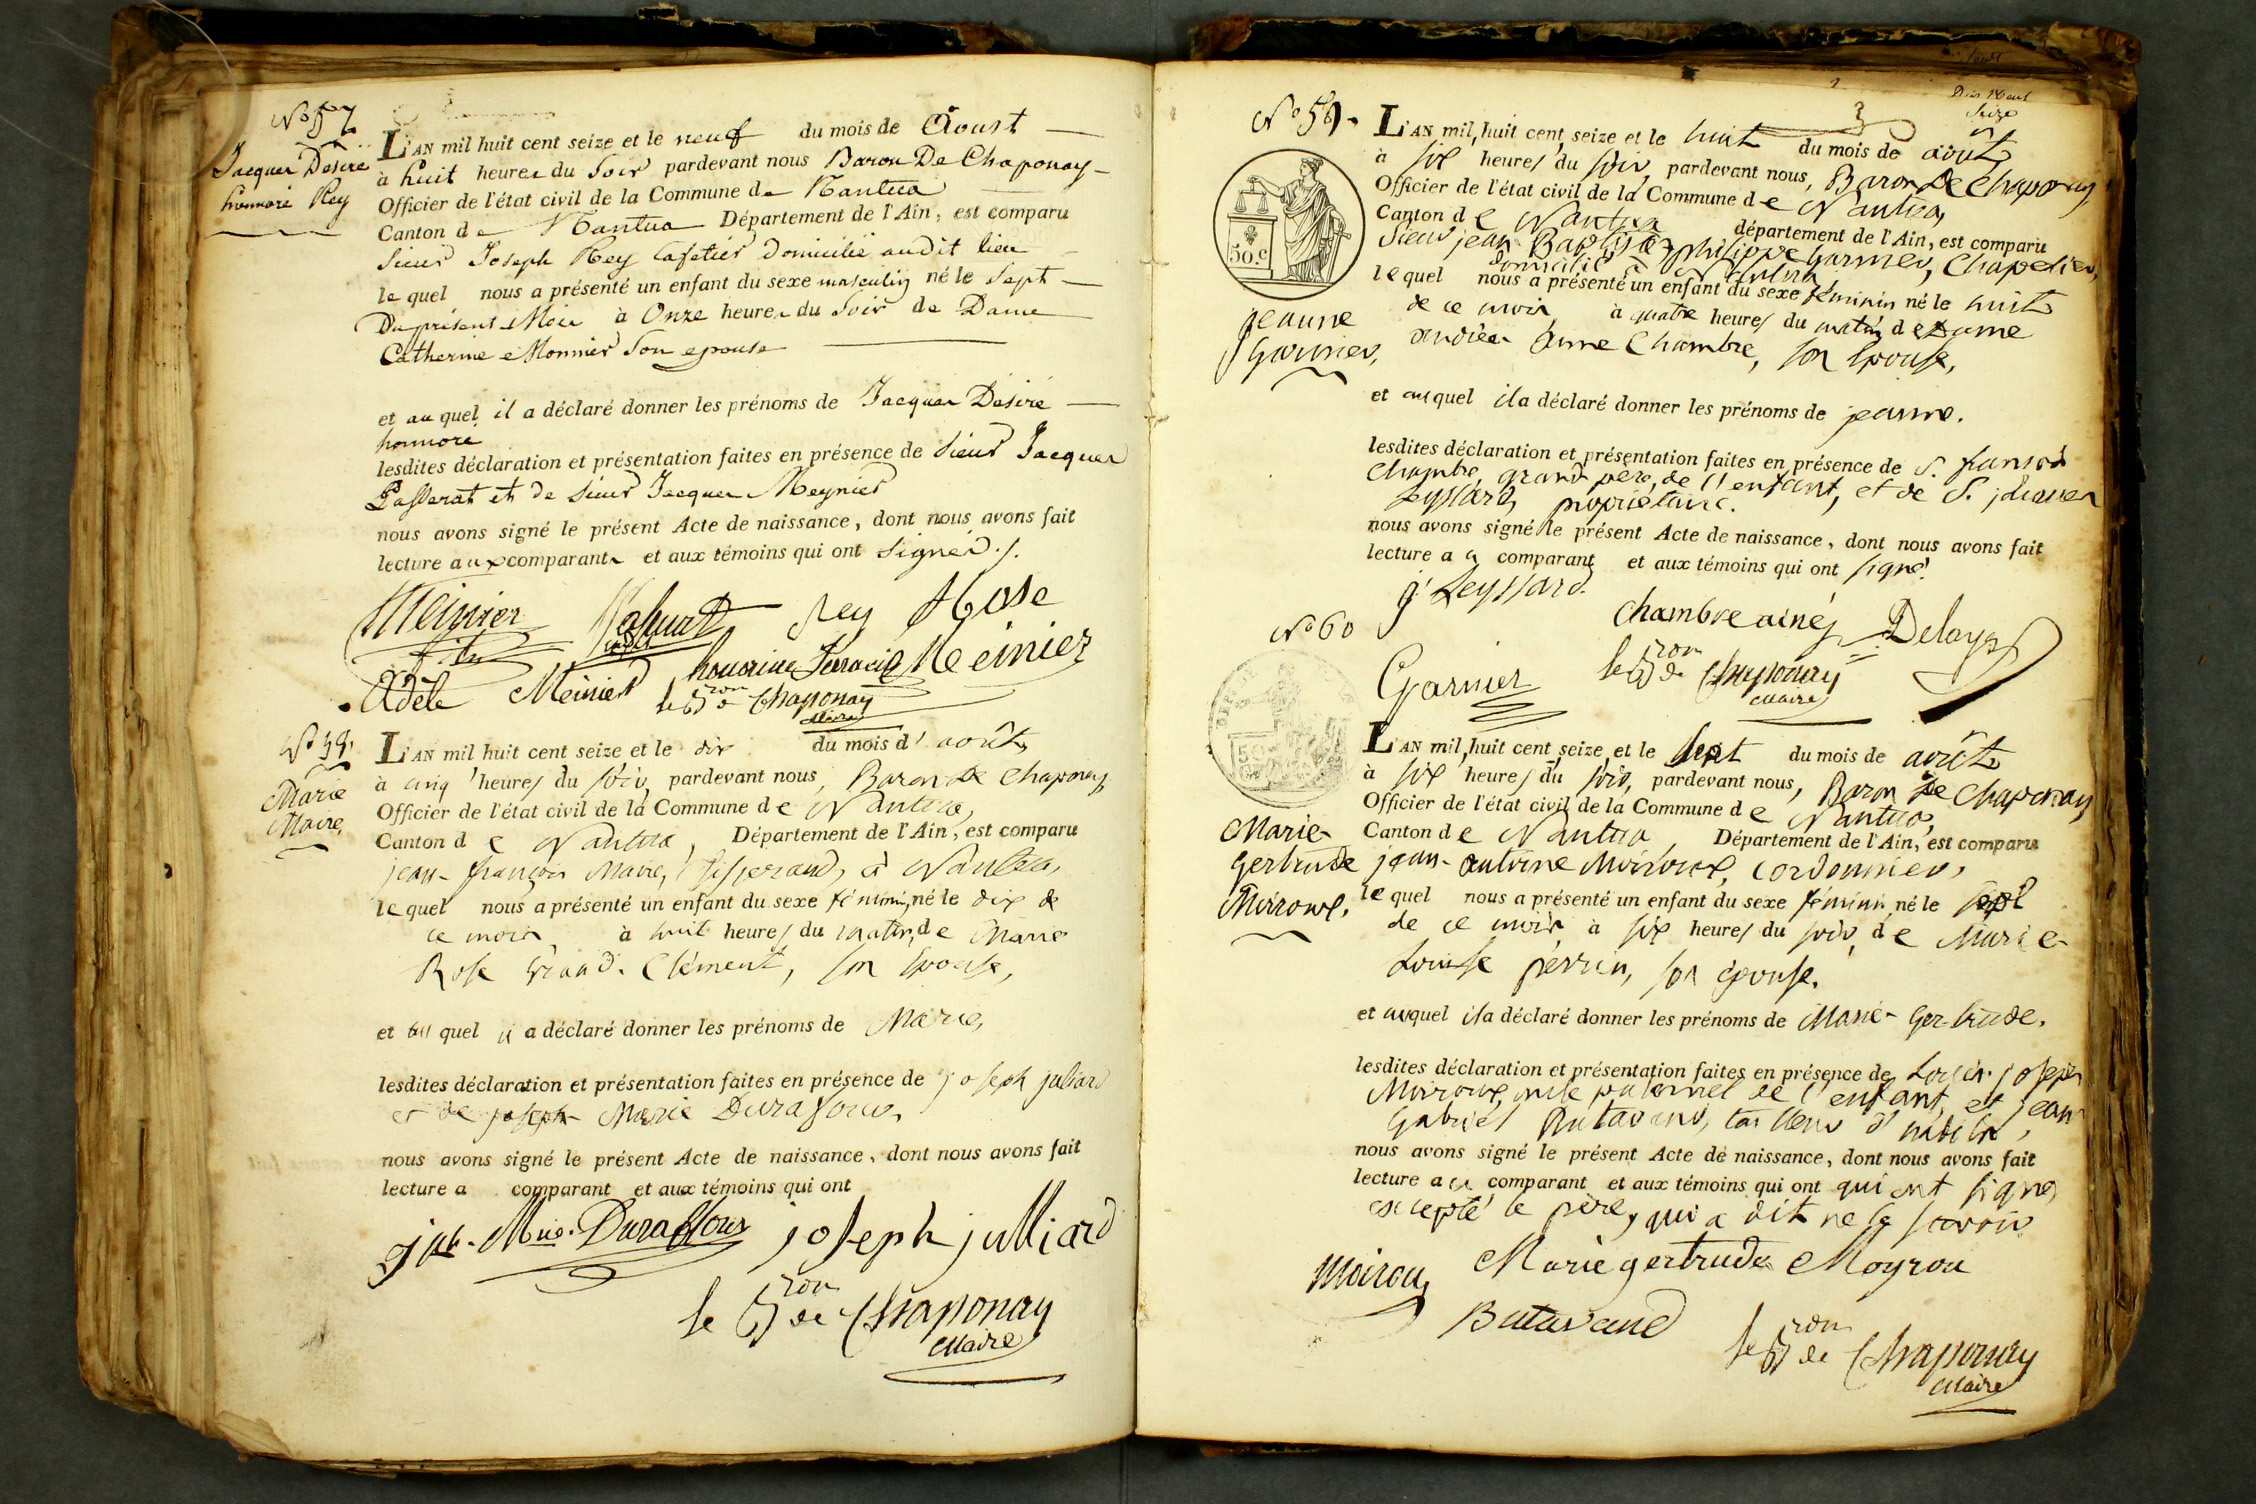 N° 57
Jacques Désiré
honnoré Rey
L'AN mil huit cent seize et le neuf du mois de Aoust
à huit heures du Soir pardevant nous Baron De Chaponay
Officier de l'état civil de la Commune de Nantua
Canton de Nantua Département de l'Ain, est comparu
Sieur Joseph Rey Cafetier domicilié audit lieu
lequel nous a présenté un enfant du sexe masculin né le Sept
Du présent Mois à Onze heures du Soir de Dame
Catherine Monnier Son epouse
et auquel il a déclaré donner les prénoms de Jacques Désiré
honnoré
lesdites déclaration et présentation faites en présence de Sieur Jacques
Passerat et de Sieur Jacques Meynier
nous avons signé le présent Acte de naissance, dont nous avons fait
lecture aux comparants et aux témoins qui ont Signés
Meinier Rey Rose
fils honorine Meinier
Adèle Meinier le Bron de Chaponay
Maire
N° 58
Marie
Maire
L'AN mil huit cent seize et le dix du mois d'août
à cinq heures du soir, pardevant nous, Baron De Chaponay,
Officier de l'état civil de la Commune de Nantua,
Canton de Nantua, Département de l'Ain, est comparu
jean-françois Maire, tisserand, à Nantua,
lequel nous a présenté un enfant du sexe féminin, né le dix de
ce mois, à huit heures du matin, de Marie
Rose Grand-Clément, son épouse,
et auquel il a déclaré donner les prénoms de Marie,
lesdites déclaration et présentation faites en présence de joseph julliard
et de joseph Marie Duraffour,
nous avons signé le présent Acte de naissance, dont nous avons fait
lecture a comparant et aux témoins qui ont
Duraffour joseph julliard
le Bron de Chaponay
Maire
Dix Neuf
Seize
N° 59
50.c
jeanne
Garnier,
L'AN mil huit cent seize et le huit du mois de août
à six heures du soir, pardevant nous, Baron De Chaponay
Officier de l'état civil de la Commune de Nantua,
Canton de Nantua département de l'Ain, est comparu
Sieur jean Baptiste philippe Garnier, Chapelier,
domicilié à Nantua,
lequel nous a présenté un enfant du sexe féminin né le huit
de ce mois, à quatre heures du matin de Dame
andrée anne Chambre, son épouse,
et auquel il a déclaré donner les prénoms de jeanne.
lesdites déclaration et présentation faites en présence de S. françois
Chambre, grand père de l'enfant, et de S. jacques
Leyssard, propriétaire.
nous avons signé le présent Acte de naissance, dont nous avons fait
lecture au comparant et aux témoins qui ont signé.
j. Leyssard.
Chambre ainé Delays
Garnier le Bron de Chaponay
Maire
N° 60
Marie-
Gertrude
Moiroux.
L'AN mil huit cent seize et le sept du mois de août
à six heures du soir, pardevant nous, Baron De Chaponay
Officier de l'état civil de la Commune de Nantua,
Canton de Nantua, Département de l'Ain, est comparu
jean-antoine Moiroux, cordonnier,
lequel nous a présenté un enfant du sexe féminin, né le sept
de ce mois à six heures du soir, de Marie
Louise perrin, son épouse.
et auquel il a déclaré donner les prénoms de Marie-Gertrude.
lesdites déclaration et présentation faites en présence de Louis joseph
Moiroux, oncle paternel de l'enfant, et jean
Gabriel Butavand, tailleur d'habits,
nous avons signé le présent Acte de naissance, dont nous avons fait
lecture au comparant et aux témoins qui ont qui ont signé,
excepté le père, qui a dit ne le savoir
Moirou Marie gertrude Moyrou
Butavand
le Bron de Chaponay
Maire